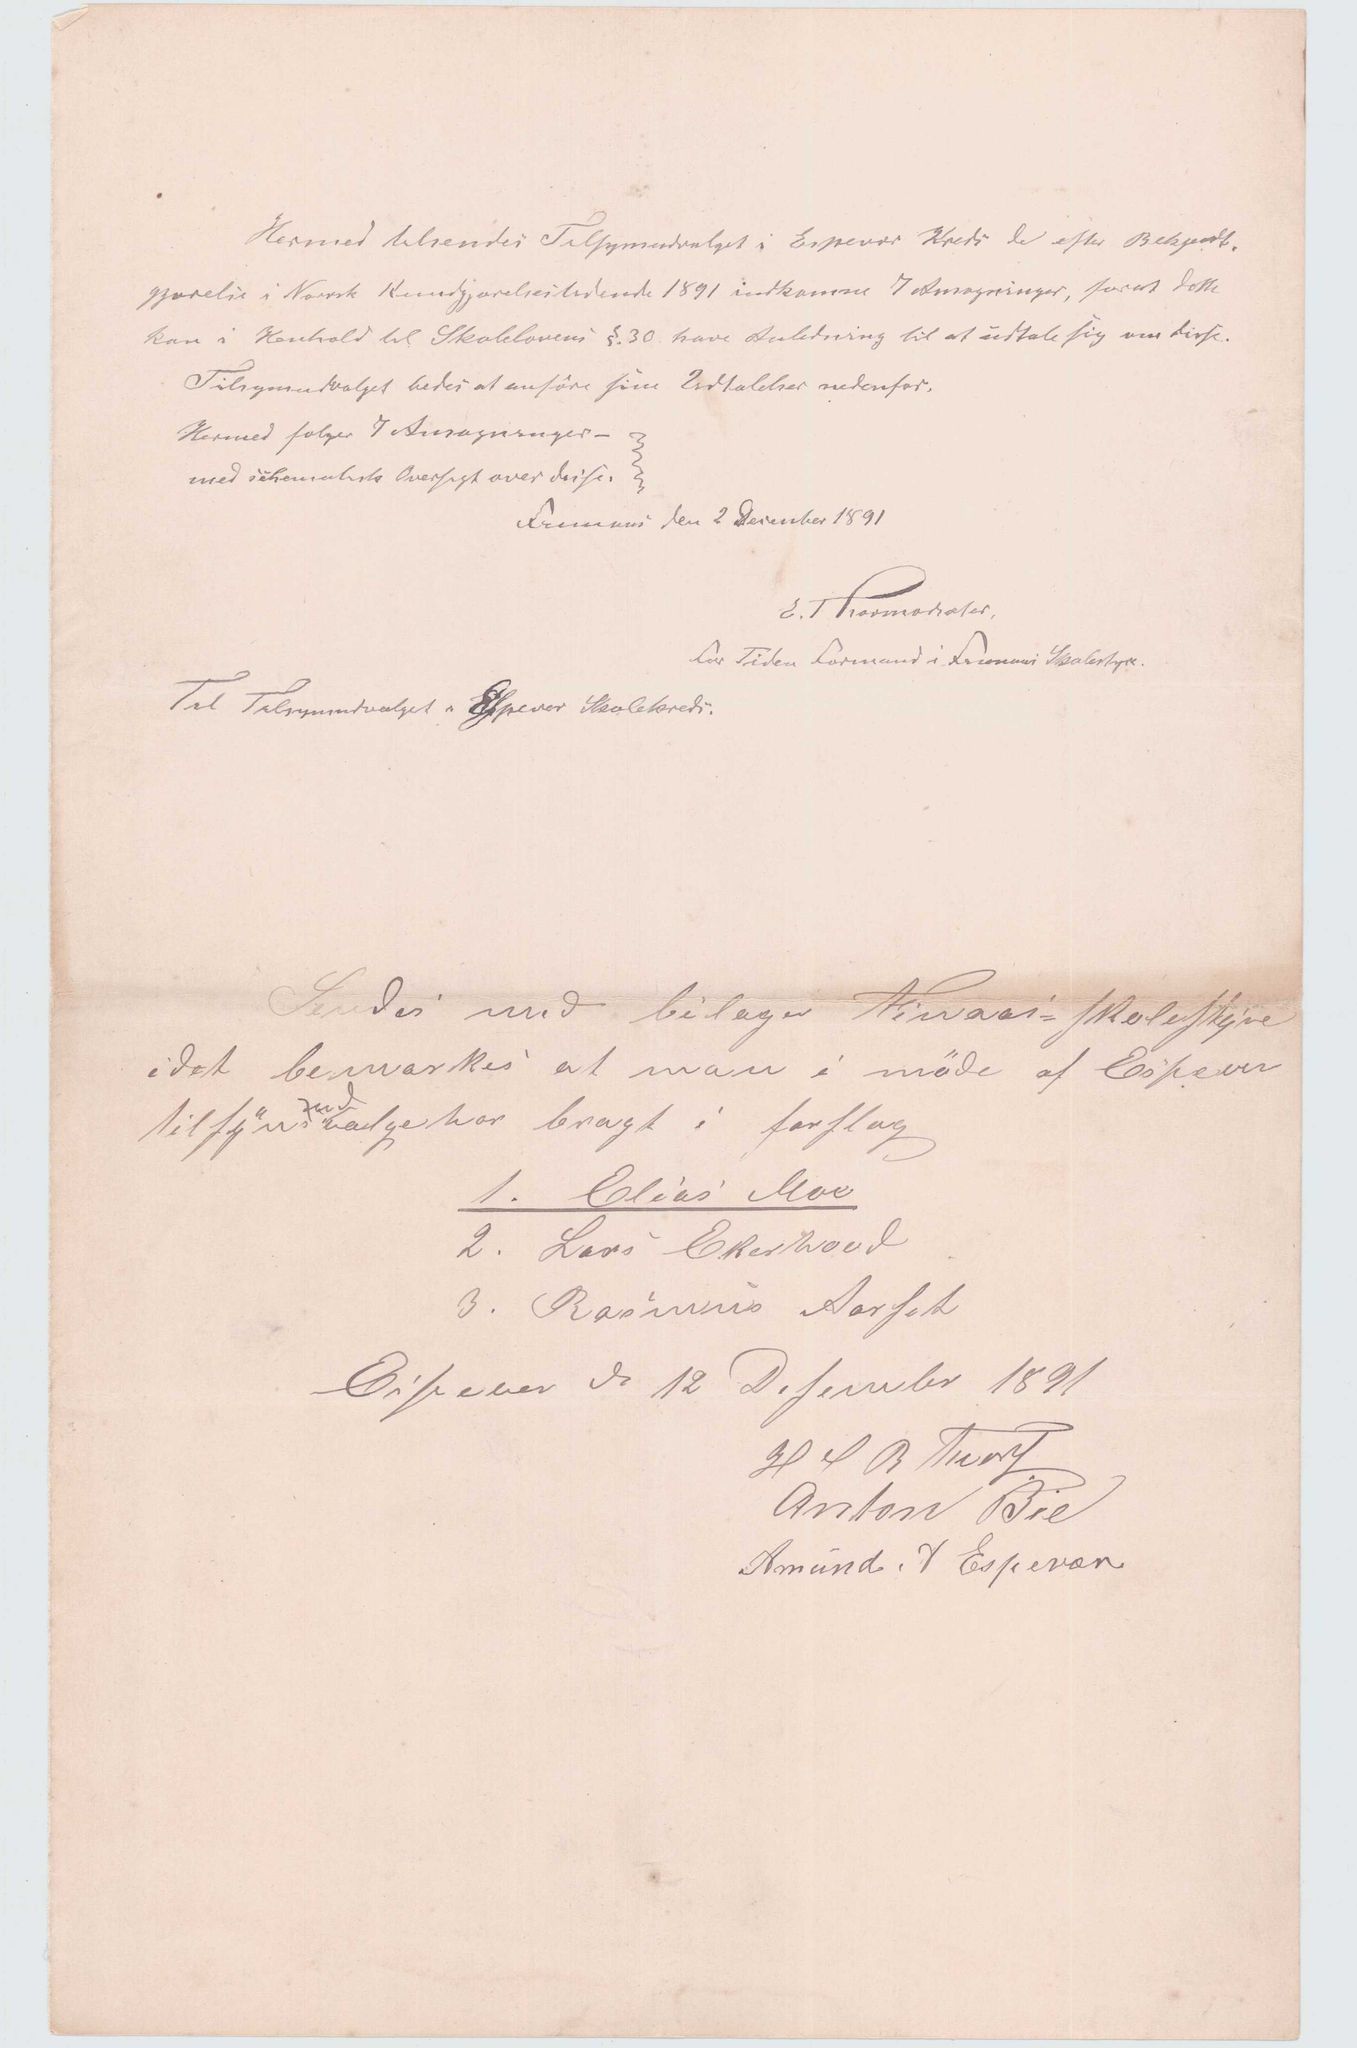 Hermed tilsendes Tilsynsudvalget i Espevær Kreds de efter Bekjendt-
gjørelse i Norsk Kundgjørelsestidende 1891 indkomne 7 Ansøgninger, forat dette
kan i Henhold til Skolelovens §.30 have Anledning til at udtale sig om disse.
Tilsynsudvalget bedes at anføre sine Udtalelser nedenfor.
Hermed følger 7 Ansøgninger -
med schematisk Oversigt over disse.
Finnaas den 2 Desember 1891
E. Thormodsæter,
For Tiden Formand i Finnaas Skolestyre.
Til Tilsynsudvalget i Espevær Skolekreds.
Sendes med bilager Finnaas- skolestyre
idet bemærkes at man i møde af Espevær
tilsynsudvalge har bragt i forslag
1. Elias Moe
2. Lars Ekerhovd
3. Rasmus Aarset
Espevær d 12 Desember 1891
H & B
Anton Bie
Amund. T Espevær